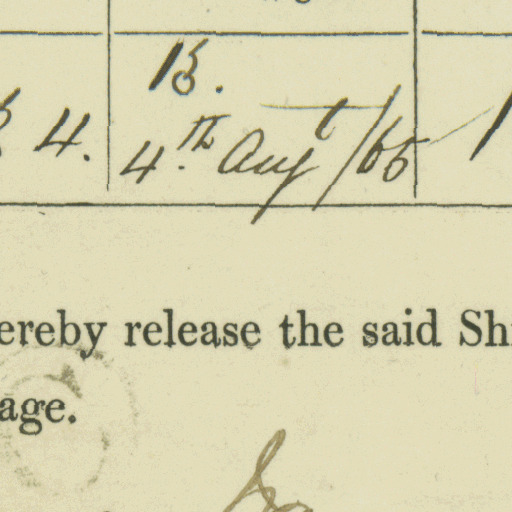 13.
4. 4.th Augt/65
ereby release the said Sh
age.